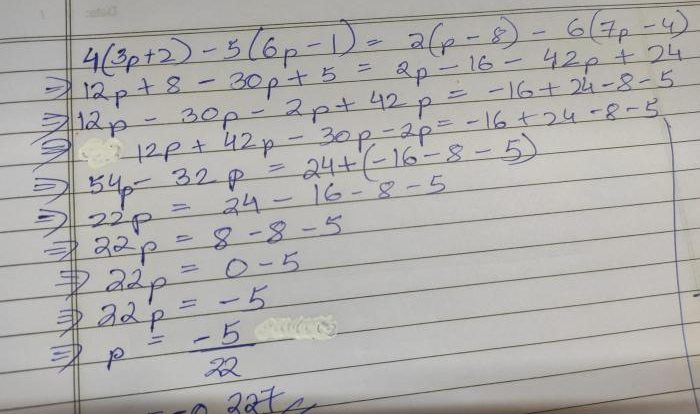 4(3p+2) - 5(6p-1) = 2(p-8) - 6(7p-4)
⇒ 12p + 8 - 30p + 5 = 2p - 16 - 42p + 24
⇒ 12p - 30p - 2p + 42p = -16 + 24 - 8 - 5
⇒ 12p + 42p - 30p - 2p = -16 + 24 - 8 - 5
⇒ 54p - 32p = 24 + (-16 - 8 - 5)
⇒ 22p = 24 - 16 - 8 - 5
⇒ 22p = 8 - 8 - 5
⇒ 22p = 0 - 5
⇒ 22p = -5
⇒ p = -5/22
= -0.227